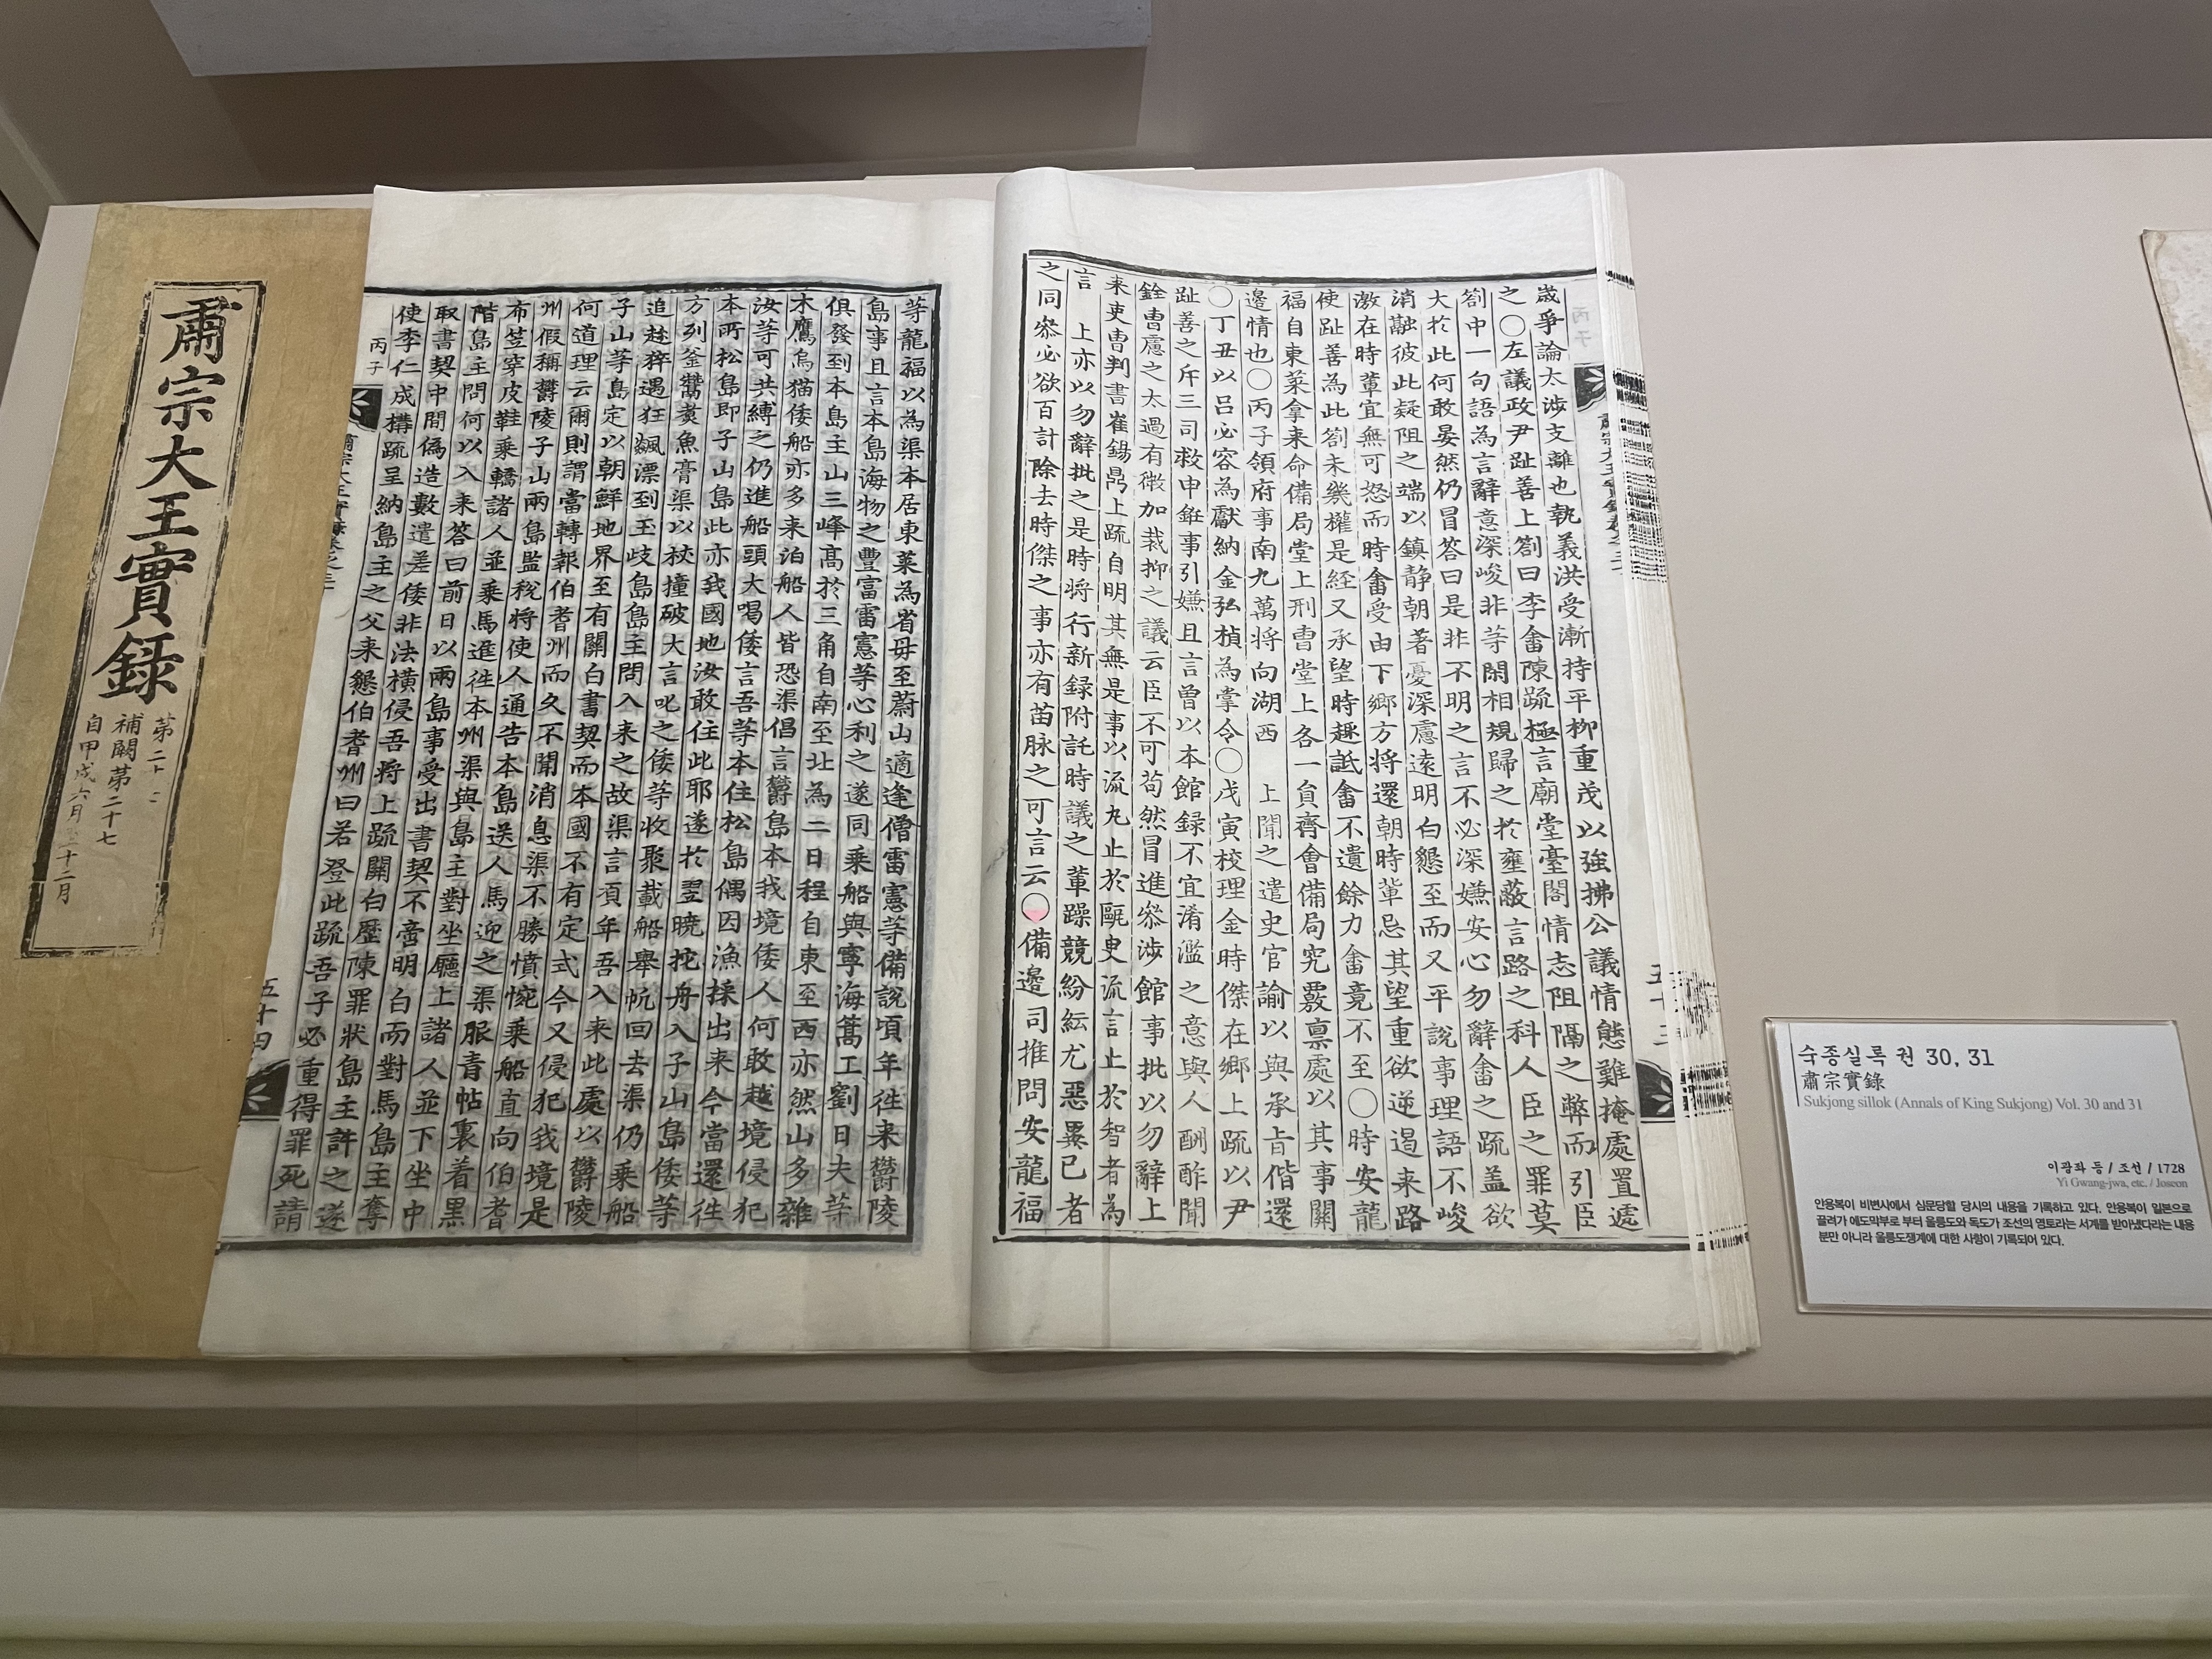 肅宗大王實錄
第二十二
補闕第二十七
自甲戌六月至十二月
歲爭論太涉支離也執義洪受漸持平柳重茂以強拂公議情態難掩處置遞
之○左議政尹趾善上劄曰李畬陳疏極言廟堂臺閣情志阻隔之弊而引臣
劄中一句語為言辭意深峻非等閑相規歸之於壅蔽言路之科人臣之罪莫
大於此何敢晏然仍冒答曰是非不明之言不必深嫌安心勿辭畬之疏盖欲
消融彼此疑阻之端以鎮静朝著憂深慮遠明白懇至而又平說事理語不峻
激在時輩宜無可怒而時畬受由下鄉方將還朝時輩忌其望重欲逆遏来路
使趾善為此劄未幾權是経又承望時趣詆畬不遺餘力畬竟不至○時安龍
福自東萊拿来命備局堂上刑曹堂上各一員齊會備局究覈禀處以其事關
邊情也○丙子領府事南九萬將向湖西 上聞之遣史官諭以與承旨偕還
○丁丑以呂必容為獻納金弘楨為掌令○戊寅校理金時傑在鄉上疏以尹
趾善之斥三司救申銋事引嫌且言曾以本館録不宜淆濫之意與人酬酢聞
銓曹慮之太過有微加裁抑之議云臣不可苟然冒進叅涉館事批以勿辭上
来吏曹判書崔錫鼎上疏自明其無是事以流丸止於甌臾流言止於智者為
言 上亦以勿辭批之是時將行新録附託時議之輩躁競紛紜尤惡異己者
之同叅必欲百計除去時傑之事亦有苗脉之可言云○備邊司推問安龍福
等龍福以為渠本居東萊為省母至蔚山適逢僧雷憲等備說頃年往来欝陵
島事且言本島海物之豐富雷憲等心利之遂同乘船與寧海篙工劉日夫等
俱發到本島主山三峰高於三角自南至北為二日程自東至西亦然山多雜
木鷹烏猫倭船亦多来泊船人皆恐渠倡言欝島本我境倭人何敢越境侵犯
汝等可共縛之仍進船頭大喝倭言吾等本住松島偶因漁採出来今當還往
本所松島即子山島此亦我國地汝敢住此耶遂於翌曉拕舟入子山島倭等
方列釜鬵煑魚膏渠以杖撞破大言叱之倭等收聚載船舉帆回去渠仍乘船
追趂猝遇狂飆漂到玉岐島島主問入来之故渠言頃年吾入来此處以欝陵
子山等島定以朝鮮地界至有關白書契而本國不有定式今又侵犯我境是
何道理云爾則謂當轉報伯耆州而久不聞消息渠不勝憤惋乘船直向伯耆
州假稱欝陵子山兩島監稅將使人通告本島送人馬迎之渠服青帖裏着黑
布笠穿皮鞋乘轎諸人並乘馬進往本州渠與島主對坐廳上諸人並下坐中
階島主問何以入来答曰前日以兩島事受出書契不啻明白而對馬島主奪
取書契中間偽造數遣差倭非法橫侵吾將上疏關白歷陳罪狀島主許之遂
使李仁成構疏呈納島主之父来懇伯耆州曰若登此疏吾子必重得罪死請
丙子
五十四
숙종실록 권 30, 31
肅宗實錄
Sukjong sillok (Annals of King Sukjong) Vol. 30 and 31
이광좌 등 / 조선 / 1728
Yi Gwang-jwa, etc. / Joseon
안용복이 비변사에서 심문당할 당시의 내용을 기록하고 있다. 안용복이 일본으로
끌려가 에도막부로 부터 울릉도와 독도가 조선의 영토라는 서계를 받아냈다라는 내용
뿐만 아니라 울릉도쟁계에 대한 사항이 기록되어 있다.